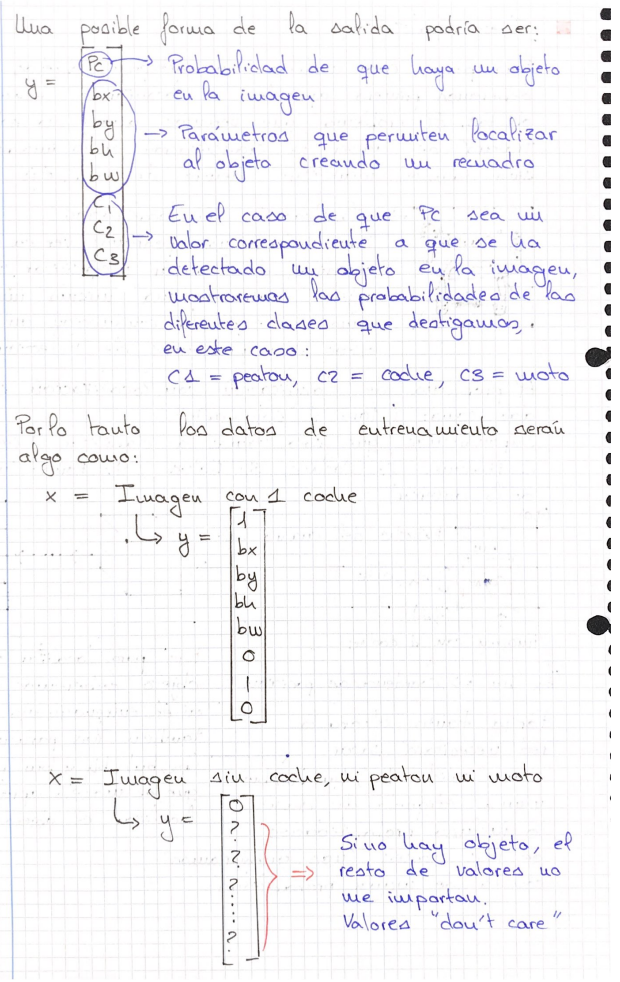 Una posible forma de la salida podría ser:
y = [Pc → Probabilidad de que haya un objeto
en la imagen
bx
by → Parámetros que permiten localizar
bh al objeto creando un recuadro
bw
C1 En el caso de que Pc sea un
C2 → valor correspondiente a que se ha
C3] detectado un objeto en la imagen,
mostraremos las probabilidades de las
diferentes clases que
en este caso:
C1 = peaton, C2 = coche, C3 = moto
Por lo tanto los datos de entrenamiento serán
algo como:
x = Imagen con 1 coche
↳ y = [1
bx
by
bh
bw
0
1
0]
x = Imagen sin coche, ni peaton ni moto
↳ y = [0
?
?
?
.....
?]
⇒ Si no hay objeto, el
resto de valores no
me importan.
Valores "don't care"